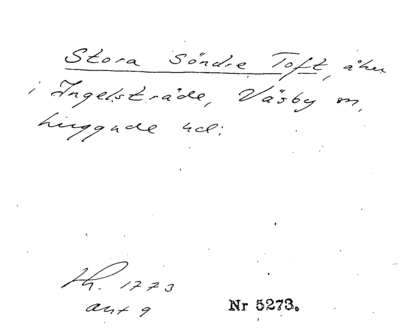 Stora Söndre Toft, åker
i Ingelsträde, Väsby sn,
Luggude hd:
Lh. 1773
akt 9
Nr 5273.